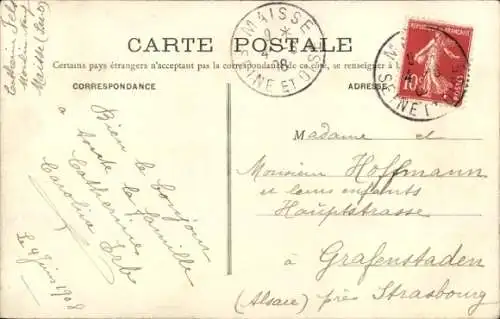 Catherine Erb
Moulin Neuf
Maisse (S et O)
MAISSE
SEINE ET OISE
CARTE POSTALE
Certains pays étrangers n'acceptant pas la correspondance de ce côté, se renseigner à la
CORRESPONDANCE
ADRESSE
RÉPUBLIQUE FRANÇAISE
10
POSTES
Bien le bonjour
à toute la famille
Catherine
Caroline Erb
Le 4 Juin 1908
Madame et
Monsieur Hoffmann
et leurs enfants
Hauptstrasse
à Grafenstaden
(Alsace) près Strasbourg